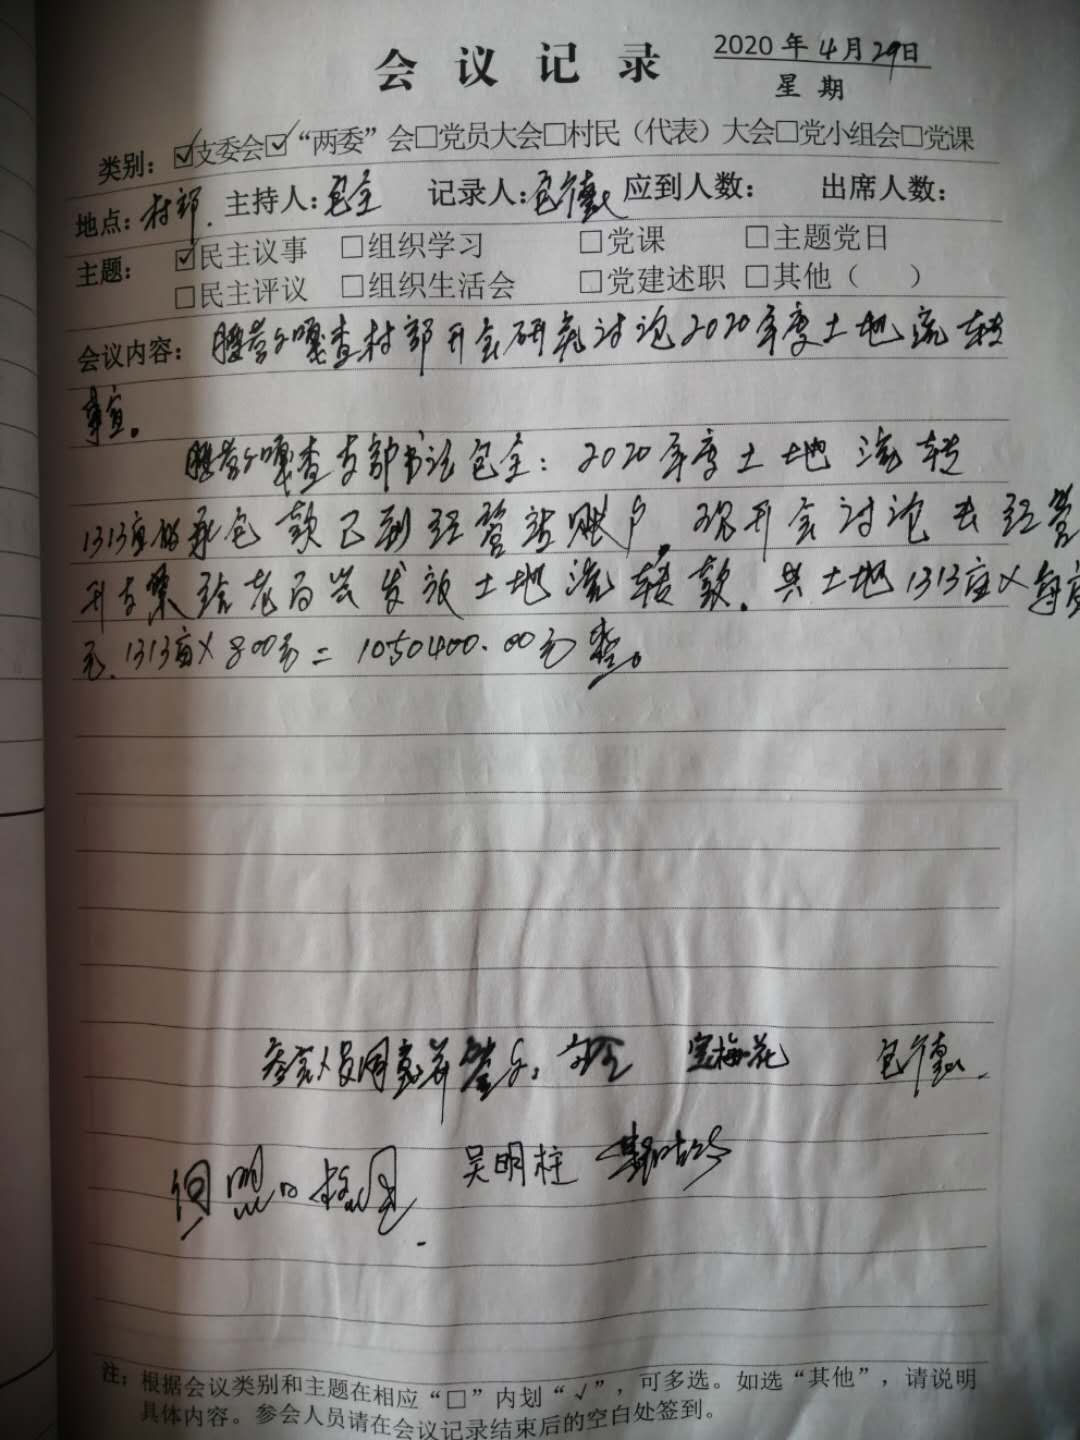 会议记录
2020年4月29日
星期
类别：☑支委会☑“两委”会□党员大会□村民（代表）大会□党小组会□党课
地点：村部. 主持人：包全 记录人：包广德 应到人数： 出席人数：
主题： ☑民主议事 □组织学习 □党课 □主题党日
□民主评议 □组织生活会 □党建述职 □其他（ ）
会议内容： 嘎查村部开会研究讨论2020年度土地流转
事宜。
嘎查支部书记包全：2020年度土地流转
1313亩的承包款已到经管站账户.现开会讨论去经管
开支票给老百姓发放土地流转款.共土地1313亩×每亩
元.1313亩×800元=1050400.00元整。
参会人员同意并签字： 宝梅花 包广德.
吴明柱
注：根据会议类别和主题在相应“□”内划“√”，可多选。如选“其他”，请说明
具体内容。参会人员请在会议记录结束后的空白处签到。